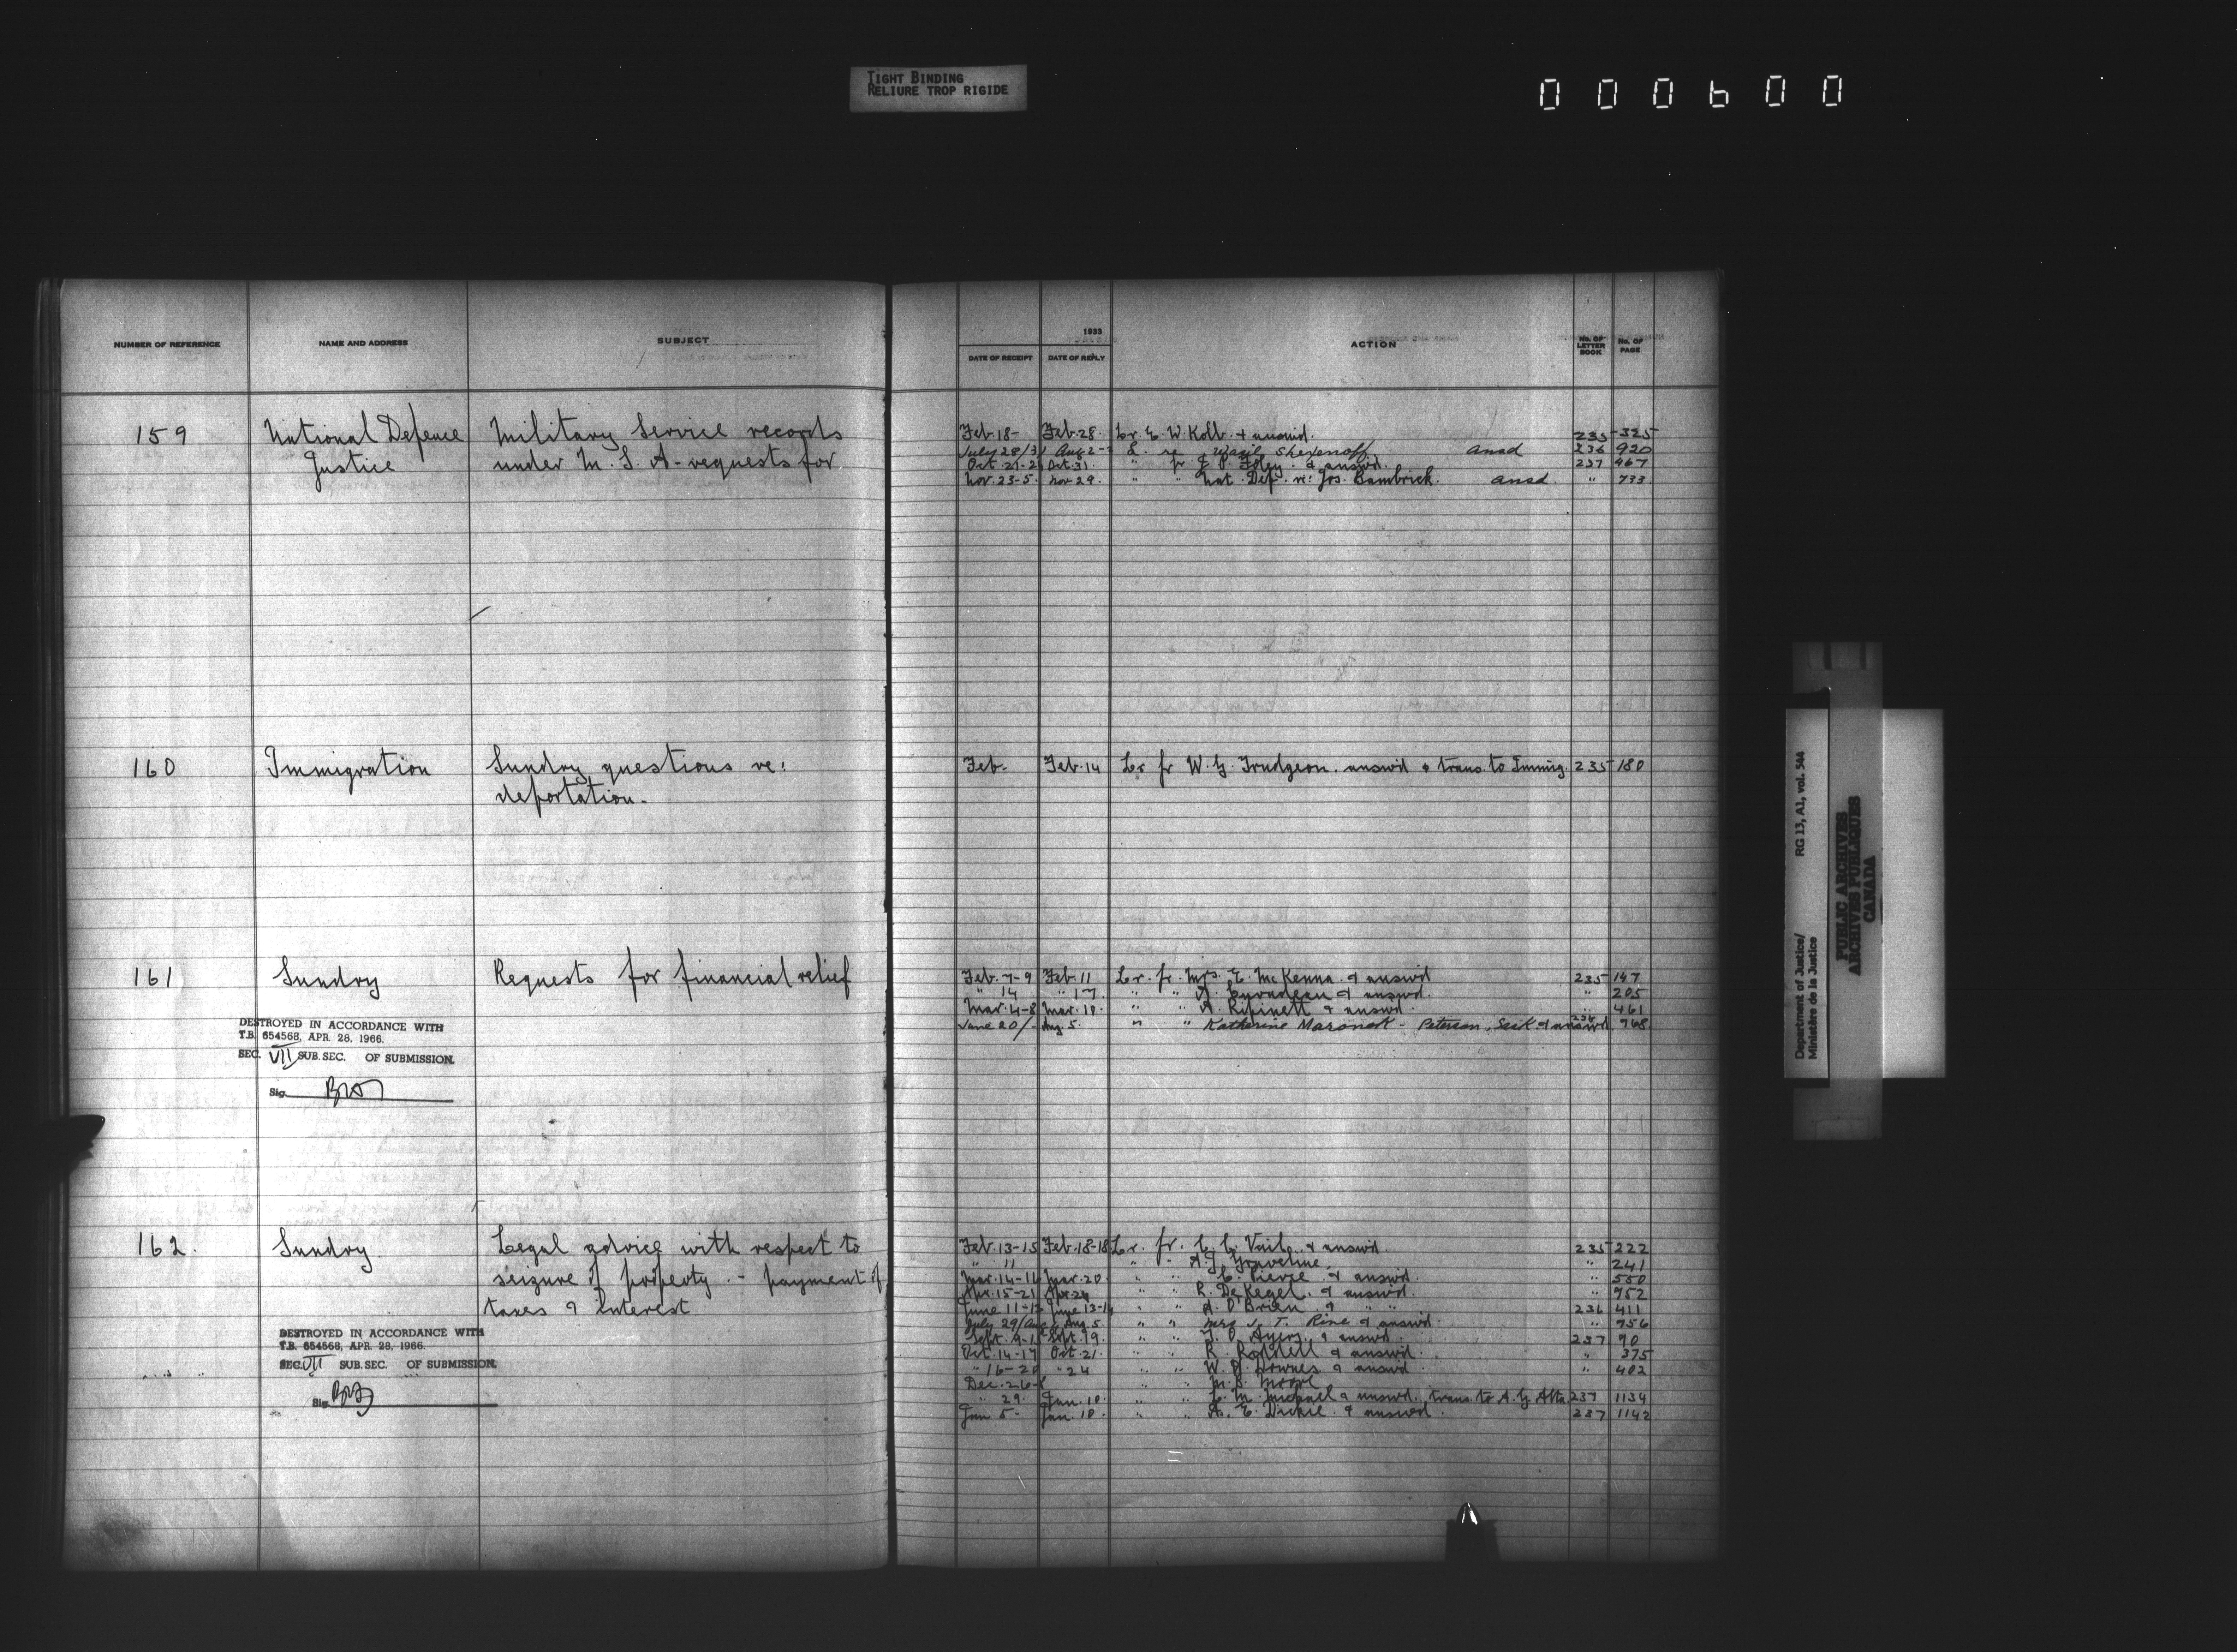 TIGHT BINDING
RELIURE TROP RIGIDE
000600
NUMBER OF REFERENCE NAME AND ADDRESS SUBJECT
159 National Defence Military Service records
Justice under M. S. A - requests for
160 Immigration Sundry questions re:
deportation.
161 Sundry Requests for financial relief
DESTROYED IN ACCORDANCE WITH
T.B. 654568, APR. 28, 1966.
SEC. VII SUB. SEC. OF SUBMISSION.
Sig.
162. Sundry Legal advice with respect to
seizure of property. - payment of
taxes & interest
DESTROYED IN ACCORDANCE WITH
T.B. 654568, APR. 28, 1966.
SEC. VII SUB. SEC. OF SUBMISSION.
Sig.
1933
DATE OF RECEIPT DATE OF REPLY ACTION No. OF LETTER BOOK No. OF PAGE
Feb. 18- Feb. 28. Lr. E. W. Kolb. & answd. 235 325
July 28/31 Aug 2- L. re Wasil Shexenoff ansd 236 920
Oct. 21-2 Oct. 31. " fr. J. P. Foley. & answd. 237 467
Nov. 23-5. Nov 29. " " Nat. Def. re: Jos. Bambrick. ansd " 733
Feb- Feb. 14 Lr fr W. G. Trudgeon. answd & trans. to Immig. 235 180
Feb. 7-9 Feb. 11 Lr. fr. Mrs. E. McKenna & answd 235 147
" 14 " 17. " " A. & answd. " 205
Mar. 4-8 Mar. 18. " " A. & answd " 461
June 20/- Aug. 5. " " Katherine Maronek - Peterson, Sask & answd 236 968
Feb. 13-15 Feb. 18-18 Lr. fr. C. C. Vail & answd. 235 222
" 11 " " A. J. Graveline. " 241
Mar. 14-16 Mar. 20. " " C. Pierce & answd. " 550
Apr. 15-21 Apr. 24 " " R. DeKegel & answd. " 952
June 11-13 June 13-14 " " A. O'Brien & " " 236 411
July 29/Aug Aug. 5 " " Mrs J. T. Rine & answd. " 956
Sept. 9-1 Sept. 19. " " & answd. 237 90
Oct. 14-17 Oct. 21. " " R. & answd. " 375
" 16-20 " 24 " " W. Downes & answd " 402
Dec. 26-8 " " M. B. Moore
" 29. Jan. 10. " " C. M. Michael & answd. trans. to A. G. Alta 237 1134
Jan 5- Jan. 10. " " A. E. Dickie. & answd. 237 1142
Department of Justice/ RG 13, A1, vol. 544
Ministère de la Justice
PUBLIC ARCHIVES
ARCHIVES PUBLIQUES
CANADA